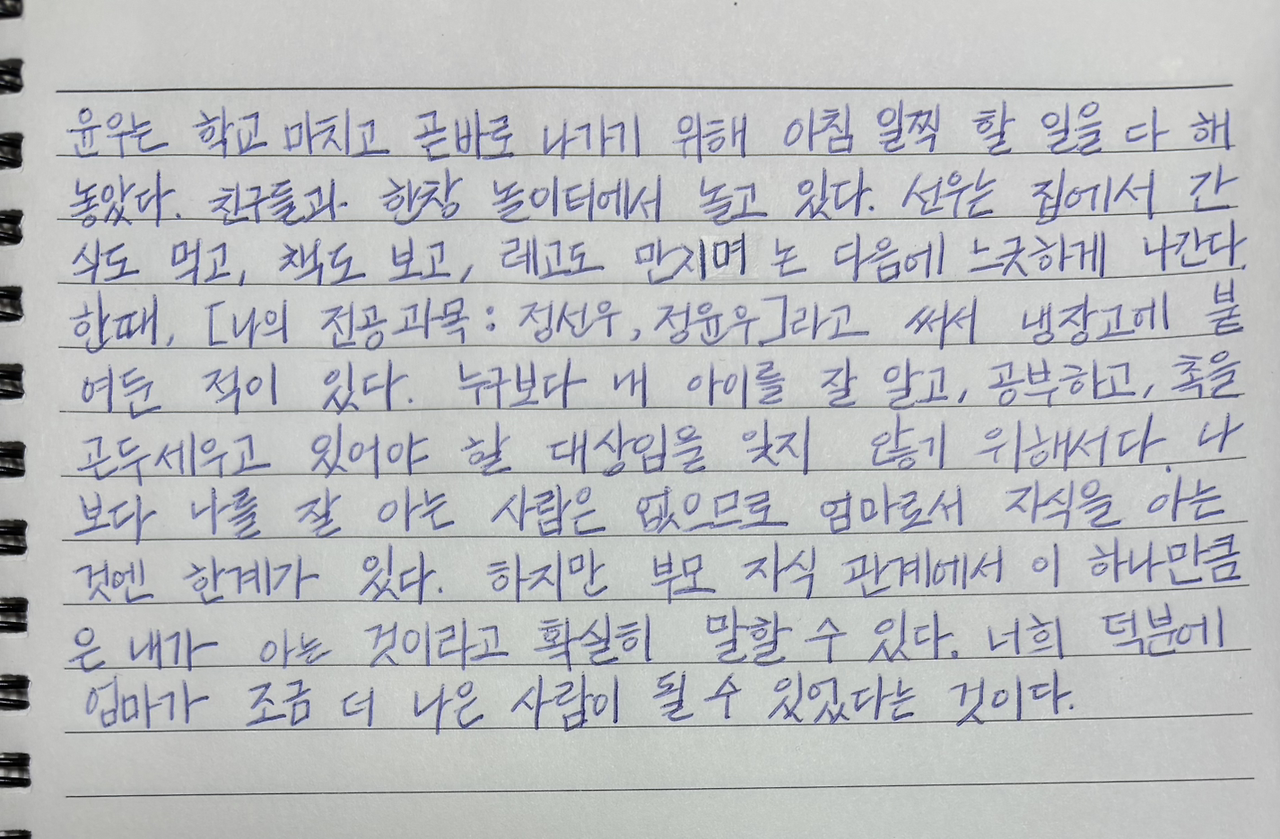 윤우는 학교 마치고 곧바로 나가기 위해 아침 일찍 할 일을 다 해
놓았다. 친구들과 한창 놀이터에서 놀고 있다. 선우는 집에서 간
식도 먹고, 책도 보고, 레고도 만지며 논 다음에 느긋하게 나간다.
한때, [나의 전공과목 : 정선우, 정윤우]라고 써서 냉장고에 붙
여둔 적이 있다. 누구보다 내 아이를 잘 알고, 공부하고, 촉을
곤두세우고 있어야 할 대상임을 잊지 않기 위해서다. 나
보다 나를 잘 아는 사람은 없으므로 엄마로서 자식을 아는
것엔 한계가 있다. 하지만 부모 자식 관계에서 이 하나만큼
은 내가 아는 것이라고 확실히 말할 수 있다. 너희 덕분에
엄마가 조금 더 나은 사람이 될 수 있었다는 것이다.